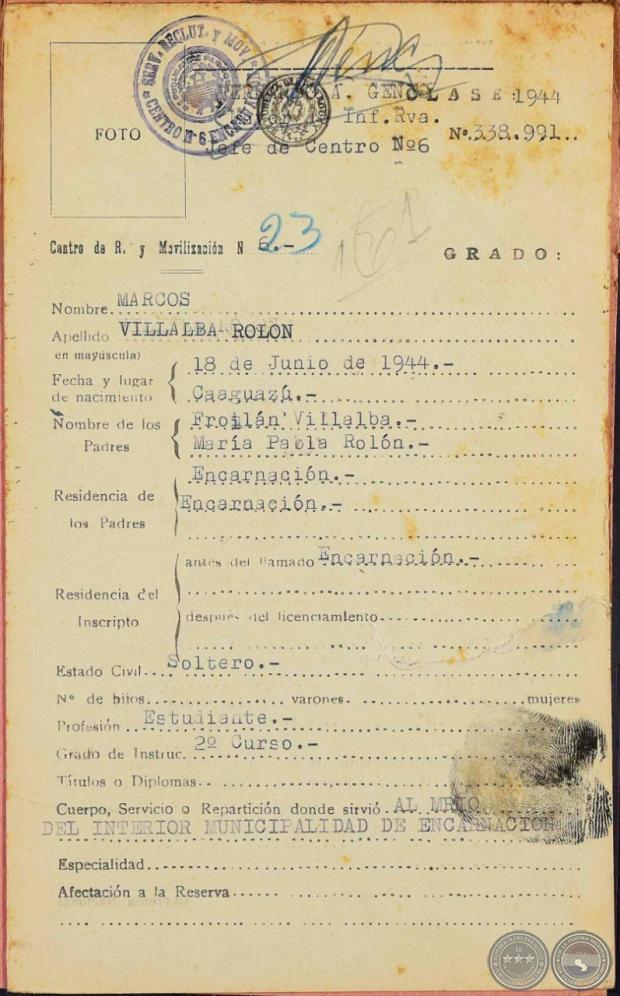 SERV. RECLUT. Y MOV.
CENTRO Nº 6
A. GENO CLASE: 1944
Inf. Rva.
FOTO
Nº. 338.991..
Jefe de Centro Nº6
Centro de R. y Movilización N 6.- 23
161
GRADO:
Nombre MARCOS
Apellido VILLALBA ROLON
en mayúscula)
Fecha y lugar de nacimiento { 18 de Junio de 1944.-
Caaguazú.-
Nombre de los Padres { Froilán Villalba.-
María Pabla Rolón.-
Residencia de los Padres { Encarnación.-
Encarnación.-
Residencia del Inscripto { antes del llamado Encarnación.-
después del licenciamiento
Estado Civil Soltero.-
Nº de hijos varones mujeres
Profesión Estudiante.-
Grado de Instruc. 2º Curso.-
Títulos o Diplomas
Cuerpo, Servicio o Repartición donde sirvió AL MRIO
DEL INTERIOR MUNICIPALIDAD DE ENCARNACION
Especialidad
Afectación a la Reserva